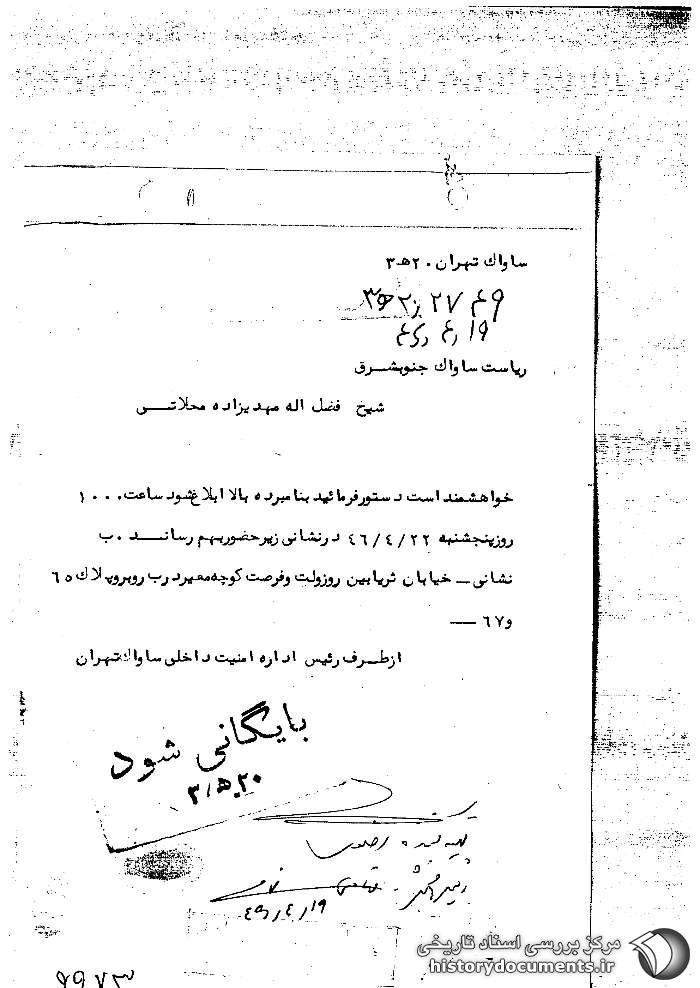 ساواك تهران ۲۰ ه ۳
۱۹ر۴ر۴۶
ریاست ساواك جنوبشرق
شیخ فضل اله مهدیزاده محلاتی
خواهشمند است دستورفرمائید بنامبرده بالا ابلاغ شود ساعت ۱۰۰۰
روزپنجشنبه ۴۶/۴/۲۲ درنشانی زیرحضوربهم رسانــد . ب
نشانی ــ خیابان ثریابین روزولت وفرصت کوچه ممیزدرب روبروپلاك ۶۵
و۶۷ ــ
ازطرف رئیس اداره امنیت داخلی ساواك تهران
بایگانی شود
۲۰ ه ۳
تهیه کننده رضوی
۱۹ر۴ر۴۶
مرکز بررسی اسناد تاریخی
historydocuments.ir